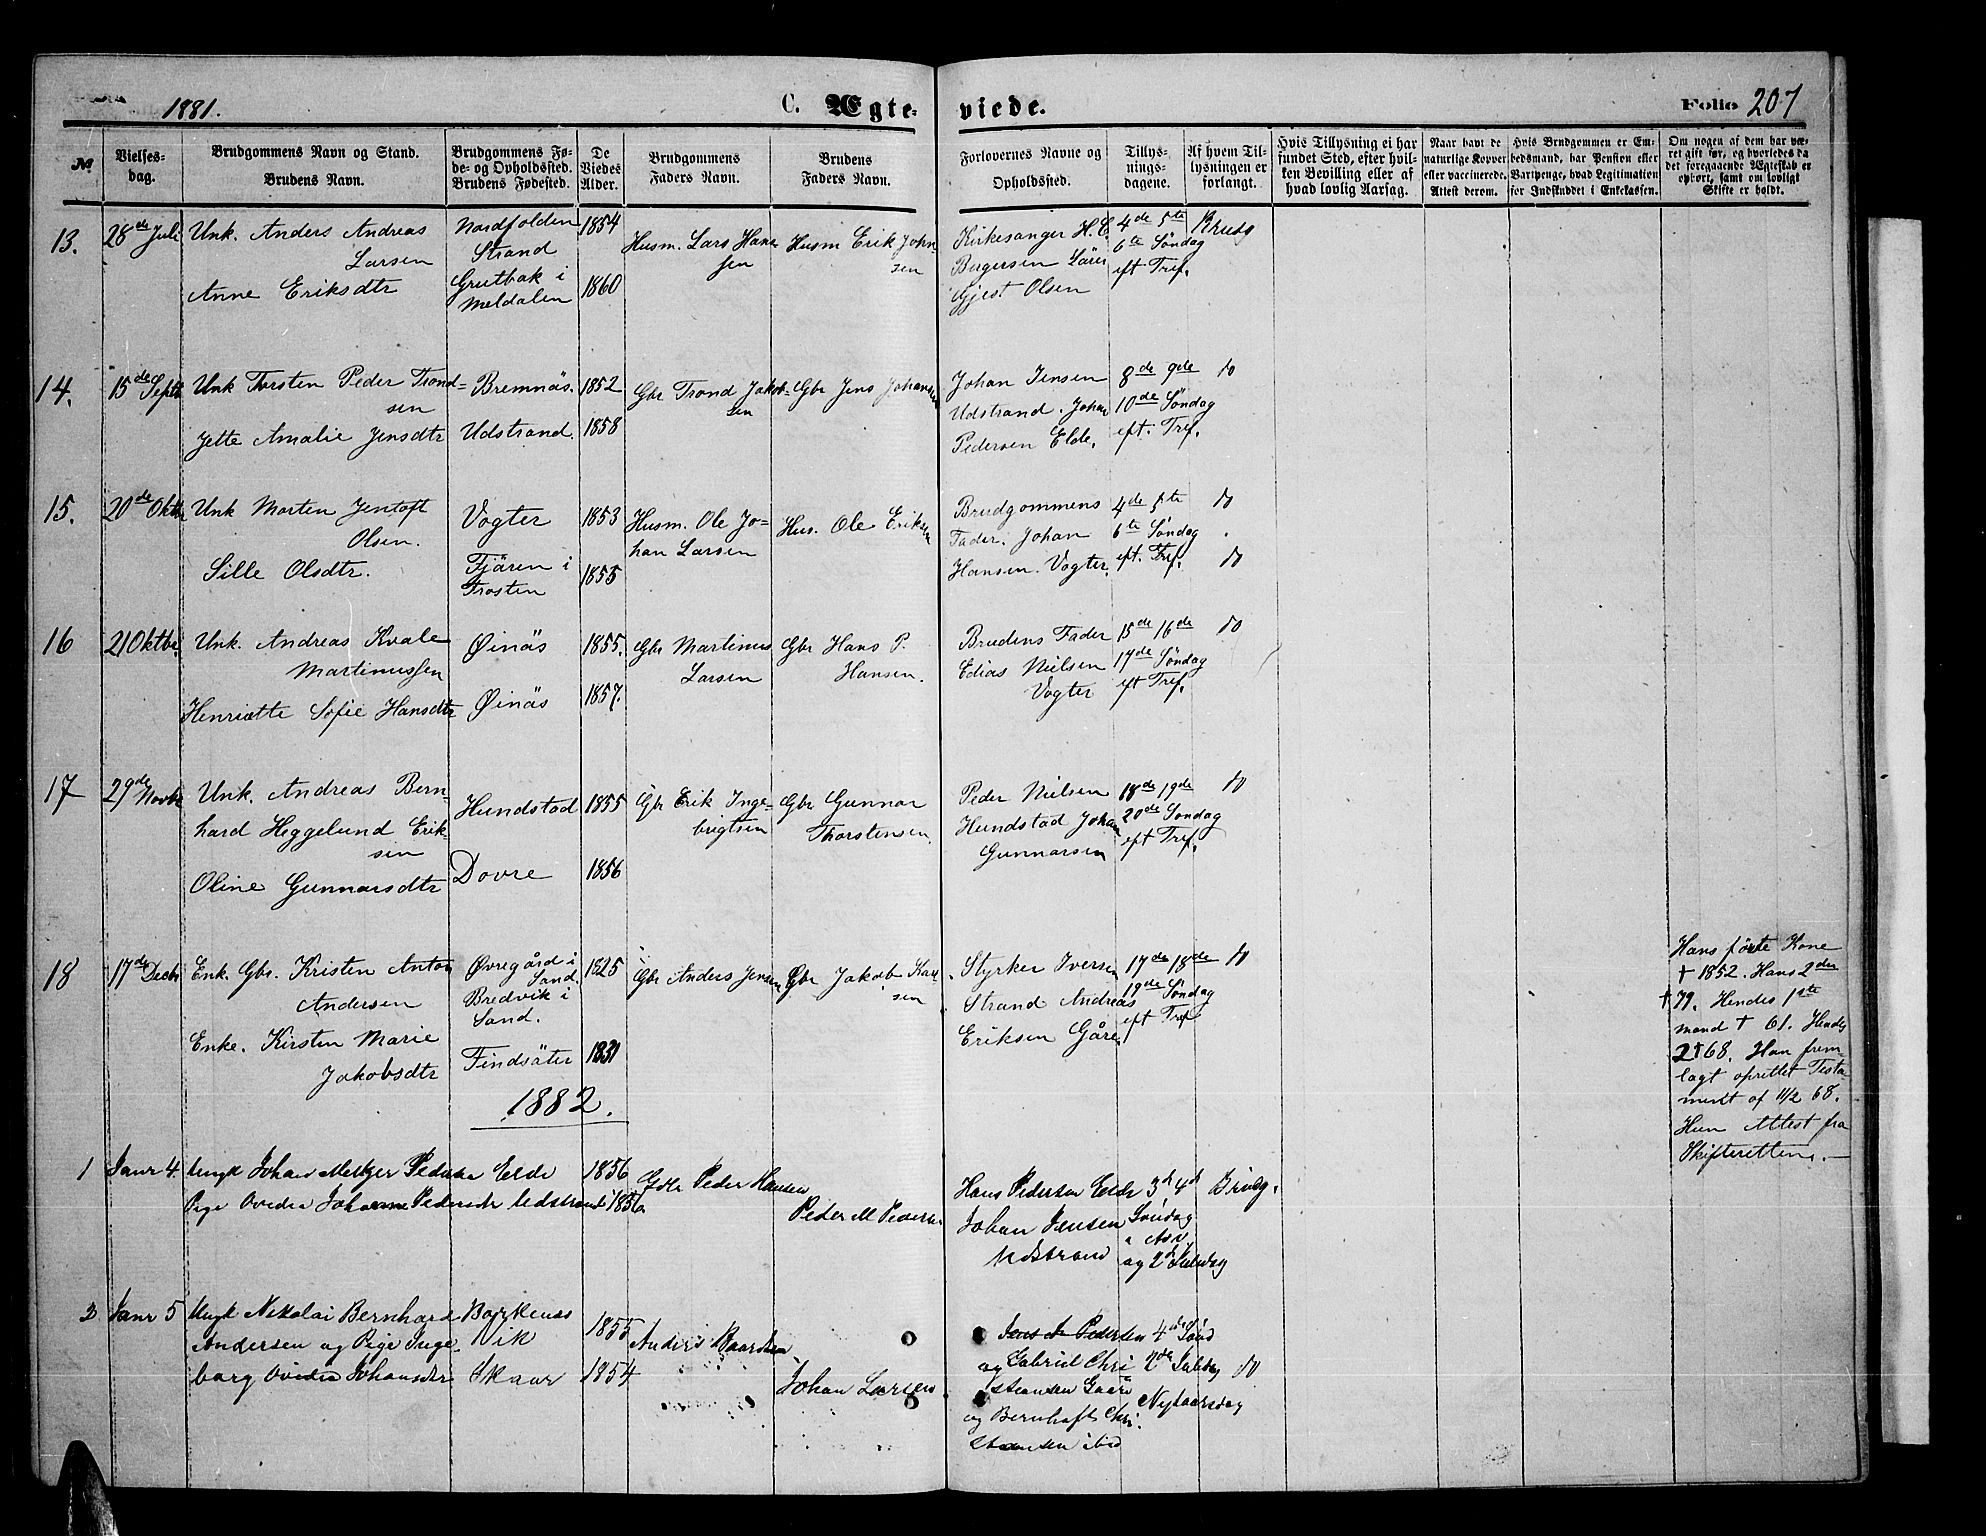 1881.
C. Ægte-
viede.
Folio 207
№
Vielses-
dag.
Brudgommens Navn og Stand.
Brudens Navn.
Brudgommens Fø-
de- og Opholdssted.
Brudens Fødested.
De
Viedes
Alder.
Brudgommens
Faders Navn.
Brudens
Faders Navn.
Forlovernes Navne og
Opholdssted.
Tillys-
nings-
dagene.
Af hvem Til-
lysningen er
forlangt.
Hvis Tillysning ei har
fundet Sted, efter hvil-
ken Bevilling eller af
hvad lovlig Aarsag.
Naar havt de
naturlige Kopper
eller vaccinerede.
Attest derom.
Hvis Brudgommen er Em-
bedsmand, har Pension eller
Vartpenge, hvad Legitimation
for Indskuddet i Enkekassen.
Om nogen af dem har væ-
ret gift før, og hvorledes da
det foregaaende Ægteskab er
ophørt, samt om lovligt
Skifte er holdt.
13.
28de Juli
Unk. Anders Andreas
Larsen
Anne Eriksdtr
Nordfolden
Strand
Grutbak i
Meldalen
1854
1860
Husm. Lars Han-
sen
Husm Erik John-
sen
Kirkesanger H. C.
Bergersen Lärer
Gjest Olsen
4de 5te
6te Söndag
eft Tref.
Brudg
14.
15de Septr
Unk Thorsten Peder Trond-
sen
Jette Amalie Jensdtr
Bremnäs.
Udstrand.
1852
1858
Gbr Trond Jakob-
sen
Gbr Jens Johansen
Johan Jensen
Udstrand. Johan
Pedersen Elde.
8de 9de
10de Söndag
eft. Tref.
do
15.
20de Oktbr
Unk Morten Jentoft
Olsen.
Sille Olsdtr.
Vogter
Fjären i
Trosten
1853
1855
Husm. Ole Jo-
han Larsen
Hus. Ole Eriksen
Brudgommens
Fader. Johan
Hansen. Vogter.
4de 5te
6te Söndag
eft. Tref.
do
do
16
21 Oktbr.
Unk. Andreas Kvale
Martinussen
Henriette Sofie Hansdtr
Øinäs
Øinäs
1855.
1857.
Gbr Martinus
Larsen
Gbr Hans P.
Hansen.
Brudens Fader
Edias Nielsen
Vogter
15de 16de
17de Söndag
eft Tref.
do
17
29de Novbr
Unk. Andreas Bern-
hard Heggelund Erik-
sen
Oline Gunnarsdtr
Hundstad
Dovre
1855
1856
Gbr Erik Inge-
brigtsen
Gbr Gunnar
Thorstensen.
Peder Nielsen
Hundstad Johan
Gunnarsen
18de 19de
20de Søndag
eft Tref.
do
18
17de Decbr
Enk. Gbr. Kristen Anton
Andersen
Enke. Kirsten Marie
Jakobsdtr
Øvregård i
Sand.
Bredvik i
Sand.
Findsäter
1825
1831
Gbr Anders Jensen
Gbr Jakob Karl-
sen
Styrker Iversen
Strand Andreas
Eriksen Gåre
17de 18de
19de Söndag
eft Tref
do
Hans förste Kone
† 1852. Hans 2den
† 79. Hendes 1ste
mand † 61. Hendes
2 † 68. Han frem-
lagt oprettet Testa-
ment af 11/2 68.
Hun Attest fra
Skifteretten.
1882.
1
Janr 4.
Ungk Johan Metzer Pedersen
Pige Ovedia Johanne Pedersdtr
Elde
Udstrand
1856
1856
Gdbr Peder Hansen
Peder M Pedersen
Hans Pedersen Elde
Johan Jensen
Udstrand
3d 4d
Søndag
i Adv
og 2d Juledag
Brudg.
2
Janr 5
Ungk Nikolai Bernhard
Andersen og Pige Inge-
borg Ovedia Johansdtr
Vik
Skaar
1855
1854
Anders Baardsen
Johan Larsen
Jens A Pedersen
og Gabriel Chri
stiansen Gaare
og Bernhoft Chri-
stiansen ibid
4de Sönd
2de Juledag
Nytaarsdag
do